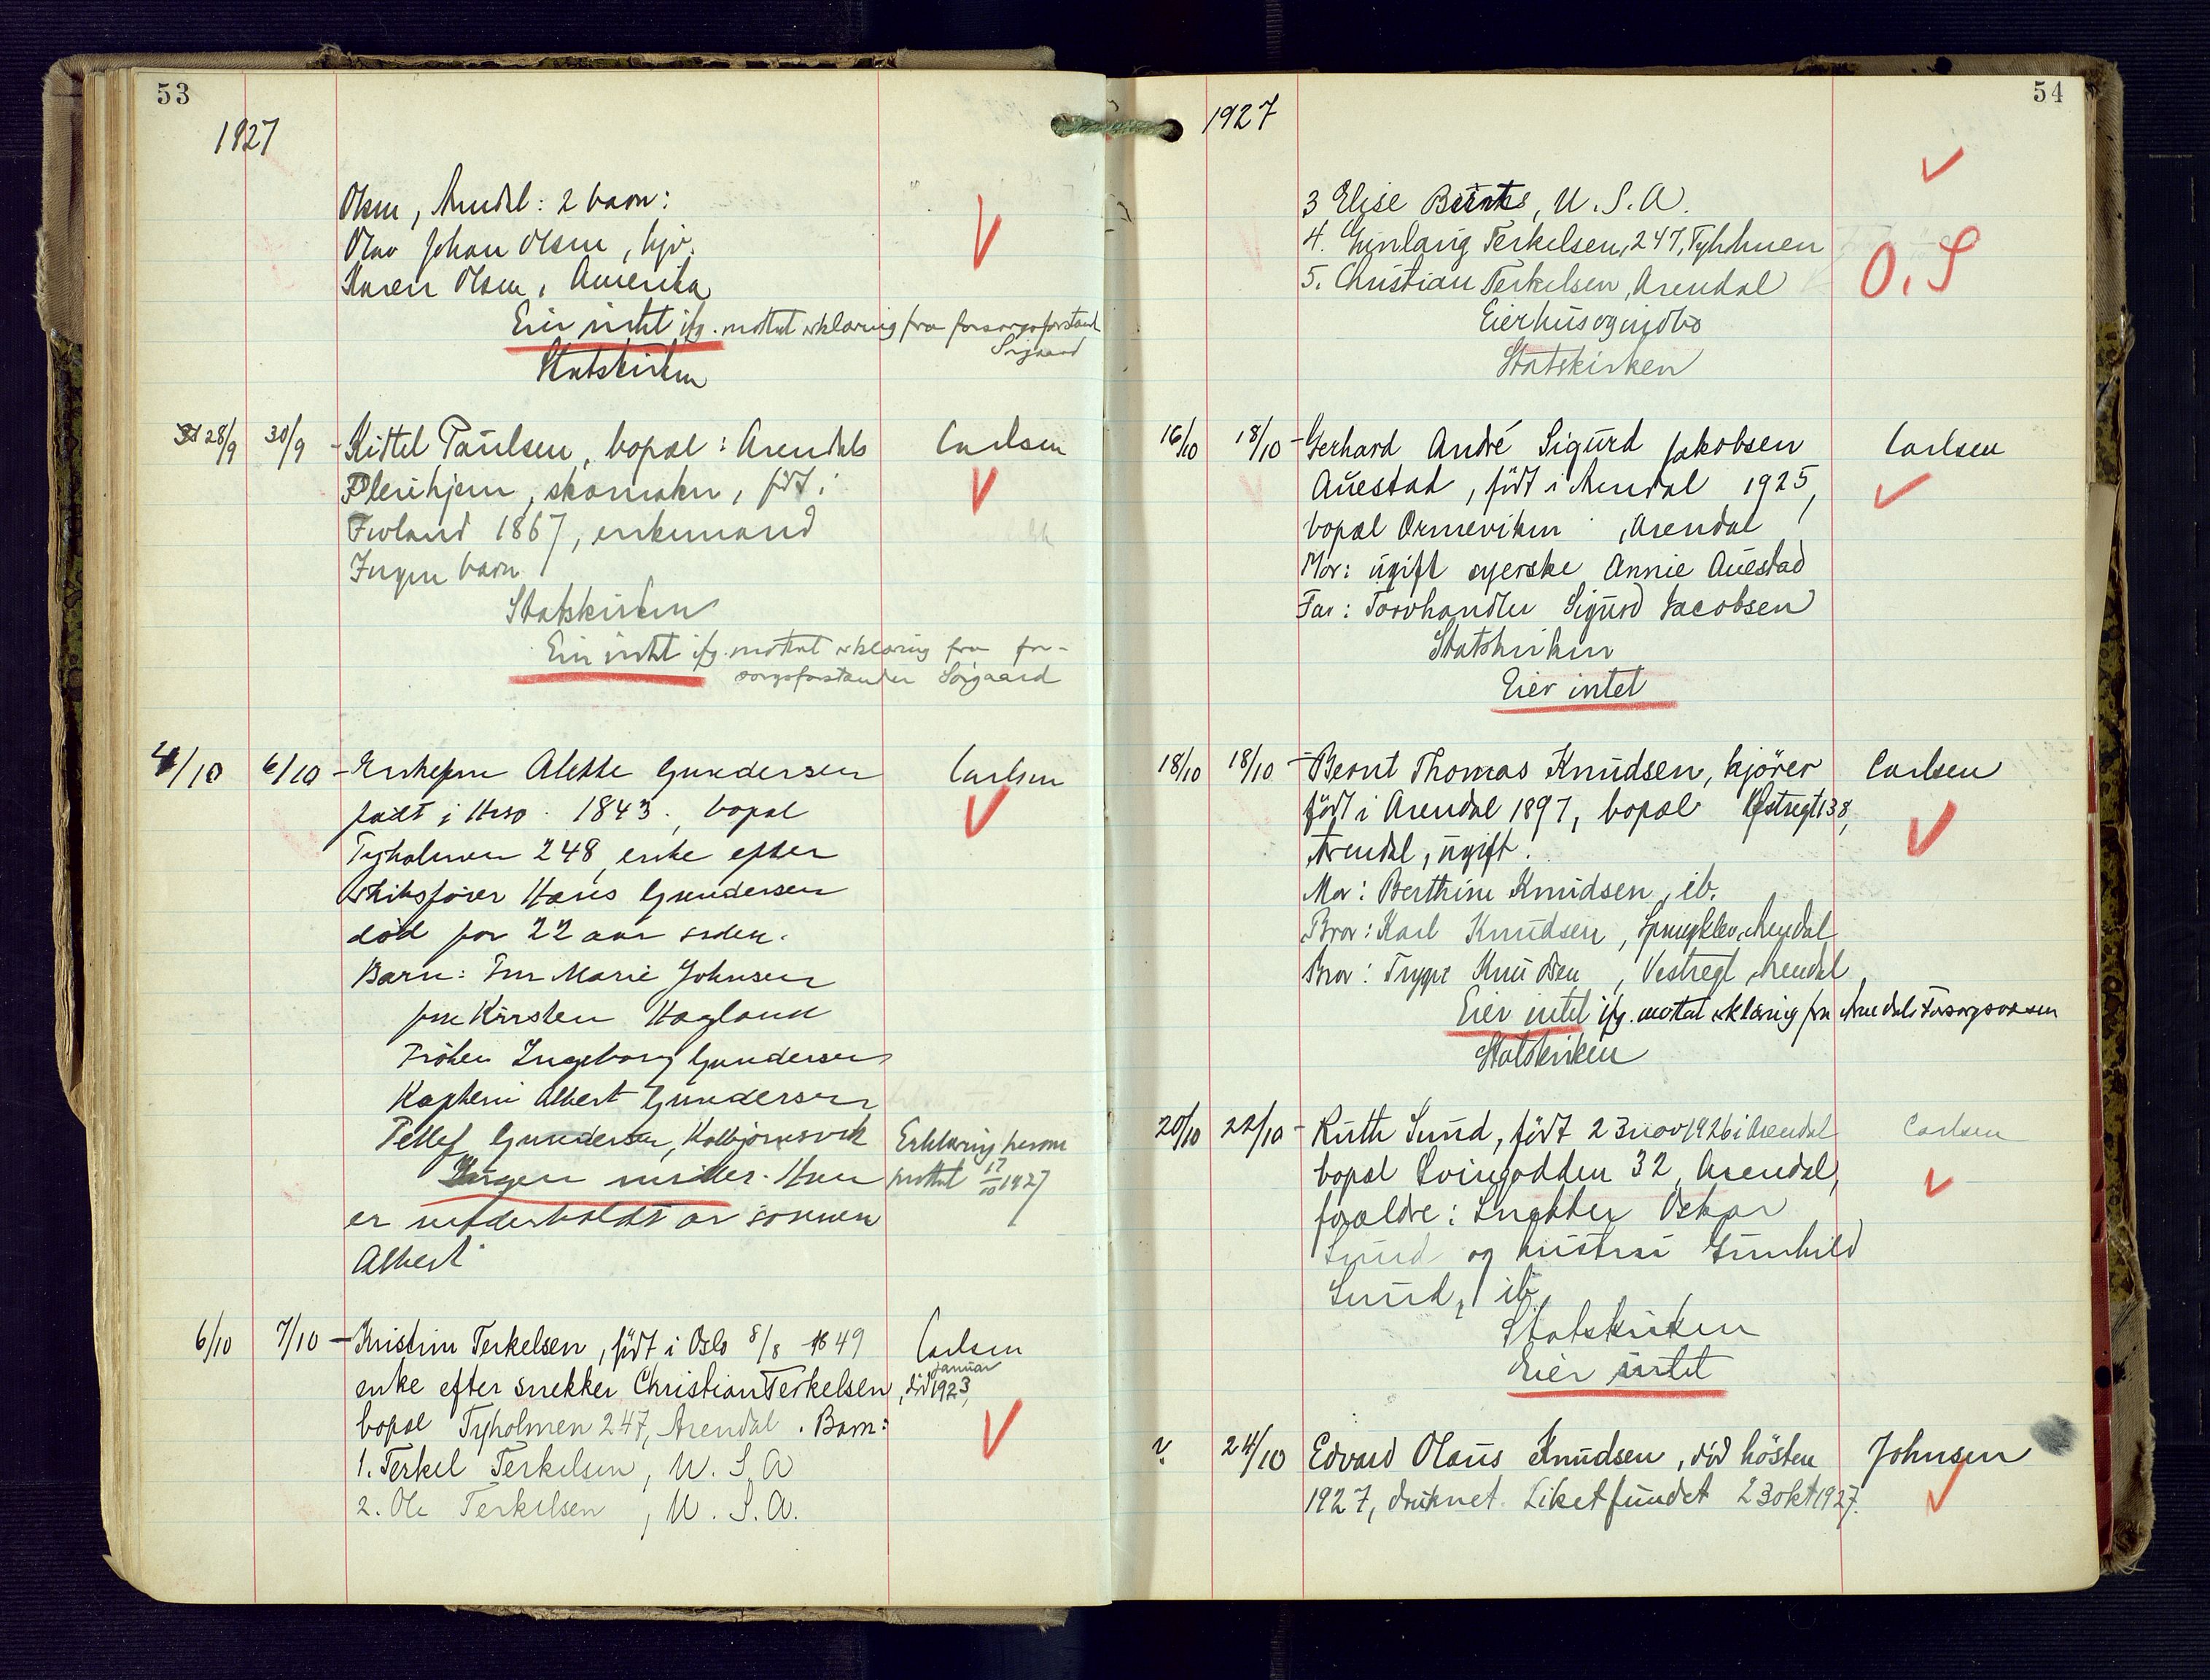 53
1927
Olsen, Arendal: 2 barn:
Olav Johan Olsen, hjv.
Karen Olsen, Amerika
Eier intet ifg. mottat erklæring fra forsorgsforstand
Sørgaard
Statskirken
28/9 30/9 - Kittel Paulsen, bopæl: Arendals Carlsen
Pleiehjem, skomaker, født i
Froland 1867, enkemand
Ingen barn
Statskirken
Eier intet ifg. mottat erklæring fra for-
sorgsforstander Sørgaard
4/10 6/10 - Enkefru Alette Gundersen Carlsen
født i Hisø. 1843., bopæl
Tyholmen 248, enke efter
skibsfører Hans Gundersen
død for 22 aar siden.
Barn: Fru Marie Johnsen
fru Kirsten Hagland
Frøken Ingeborg Gundersen
Kaptein Albert Gundersen
Tellef Gundersen, Kolbjørnsvik Erklæring herom
Ingen midler. Hun mottat 17/10 1927
er underholdt av sønnen
Albert
6/10 7/10 - Kristine Terkelsen, født i Oslo 8/8 1849 Carlsen
enke efter snekker Christian Terkelsen, død januar 1923,
bopæl Tyholmen 247, Arendal. Barn:
1. Terkel Terkelsen, U.S.A
2. Ole Terkelsen, U.S.A.
54
1927
3 Elise, U.S.A.
4. Terkelsen, 247, Tyholmen
5. Christian Terkelsen, Arendal O.S
Eier hus og indbo
Statskirken
16/10 18/10 - Gerhard André Sigurd Jakobsen Carlsen
Auestad, født i Arendal 1925,
bopæl Ormeviken, Arendal
Mor: ugift syerske Annie Auestad
Far: Torvhandler Sigurd Jacobsen
Statskirken
Eier intet
18/10 18/10 - Bernt Thomas Knudsen, kjører Carlsen
født i Arendal 1897, bopæl Vestregt 138,
Arendal, ugift.
Mor: Berthine Knudsen, ib.
Bror: Karl Knudsen, Arendal
Bror: Trygve Knudsen, Vestregt Arendal
Eier intet ifg. mottat erklæring fra Arendals Forsorgsvæsen
Statskirken
20/10 22/10 - Ruth Sund, født 23 nov 1926 i Arendal Carlsen
bopæl Svinodden 32, Arendal,
forældre: Snekker Oskar
Sund og hustru Gunhild
Sund, ib.
Statskirken
Eier intet
? 24/10 Edvard Olaus Knudsen, død høsten Johnsen
1927, druknet. Liket fundet 23 okt 1927.